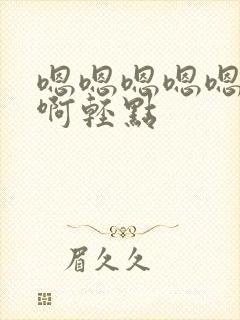 嗯嗯嗯嗯嗯
啊輕點
眉久久